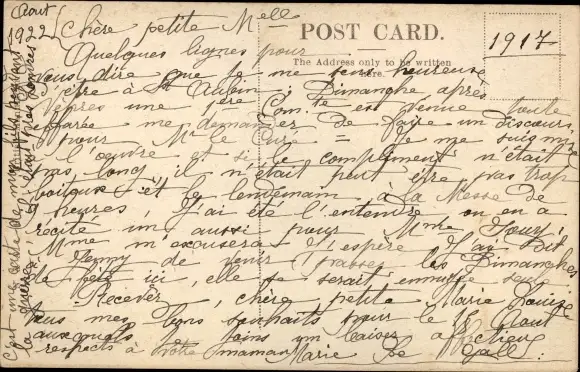 Aout
1922
Chère petite Mell
POST CARD.
The Address only to be written
Here.
1917
Quelques lignes pour
vous dire que je me sens heureuse
d'être à St Aubin; Dimanche après
Vêpres une 1ère Com.te est venue toute
me demander de faire un discours
pour Mr le Curé = Je me suis mise
à l'oeuvre et si le compliment n'était
pas long, il n'était peut être pas trop
et le lendemain à la Messe de
heures, j'ai été l'entendre on en a
récité un aussi pour Mme
Mme m'excusera j'espère. J'ai dit
Jenny de venir passer les Dimanches
de fête ici, elle se serait ennuyée seule
Recevez, chère petite Marie Louise
tous mes bons souhaits pour le 15 Aout
auxquels je joins un baiser affectueux
respects à votre maman Marie Le Gall:
C'est ma carte de
la